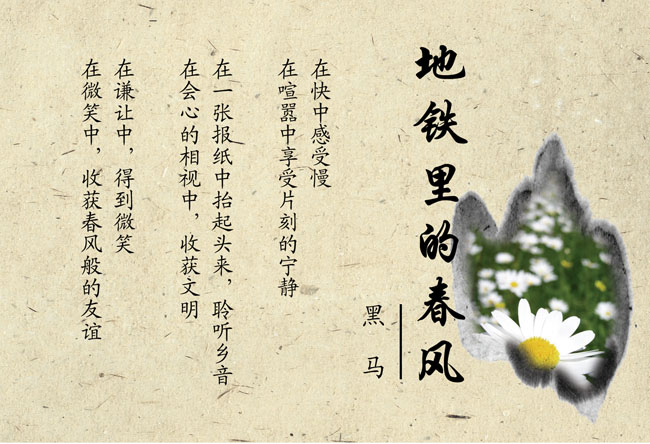 地铁里的春风
黑马
在快中感受慢
在喧嚣中享受片刻的宁静
在一张报纸中抬起头来，聆听乡音
在会心的相视中，收获文明
在谦让中，得到微笑
在微笑中，收获春风般的友谊